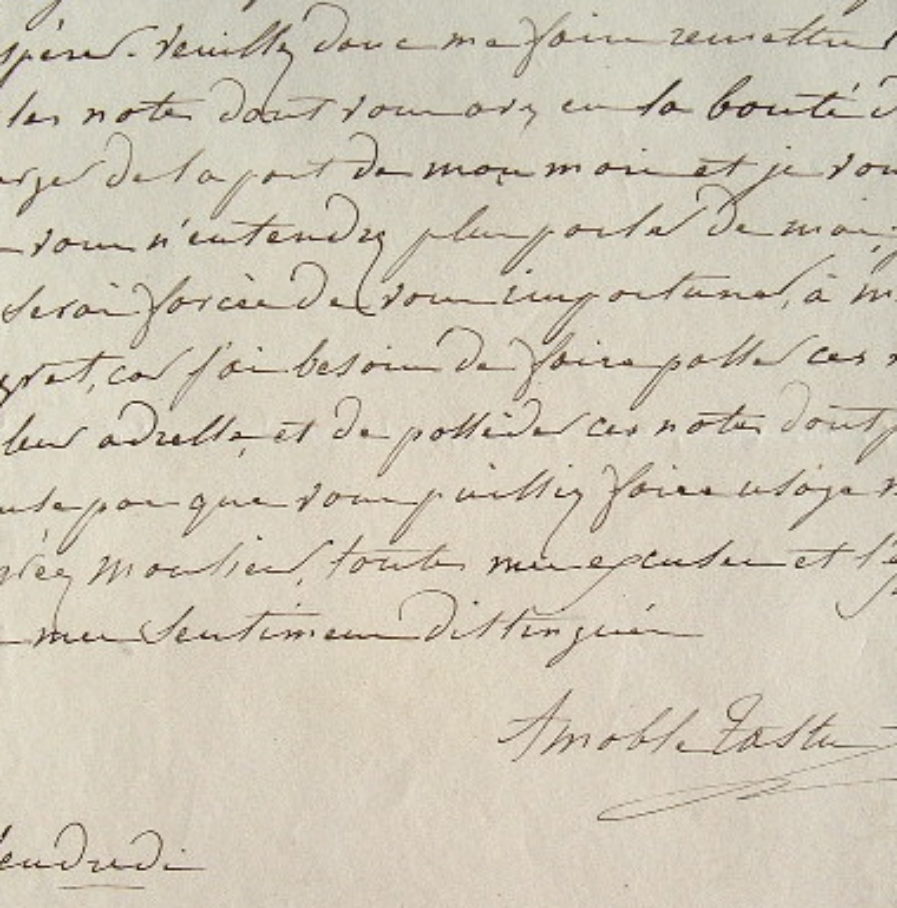 espérer. Veuillez donc me faire remettre
les notes dont vous avez eu la bonté d
arger de la part de mon mari et je vou
vous n'entendrez plus parler de moi, j
serai forcée de vous importuner, à m
gret, car j'ai besoin de faire passer ces
leur adresse, et de posséder ces notes dont
pas que vous puissiez faire usage
réez Monsieur, toutes mes excuses et l'e
mes sentimens distingués
Amable Tastu
Vendredi